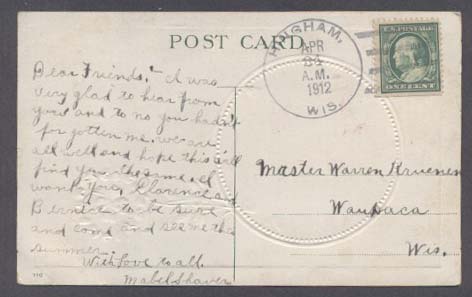 POST CARD
HINGHAM,
APR
A.M.
1912
WIS.
U.S. POSTAGE
ONE CENT
Dear Friends:- I was
very glad to hear from
you and to no you hadn't
forgotten me. we are
all well and hope this will
find you the same. I
want you, Clarence and
Bernice to be sure
and come and see me this
summer.
With love to all.
Mabel Shaver
Master Warren
Waupaca
Wis.